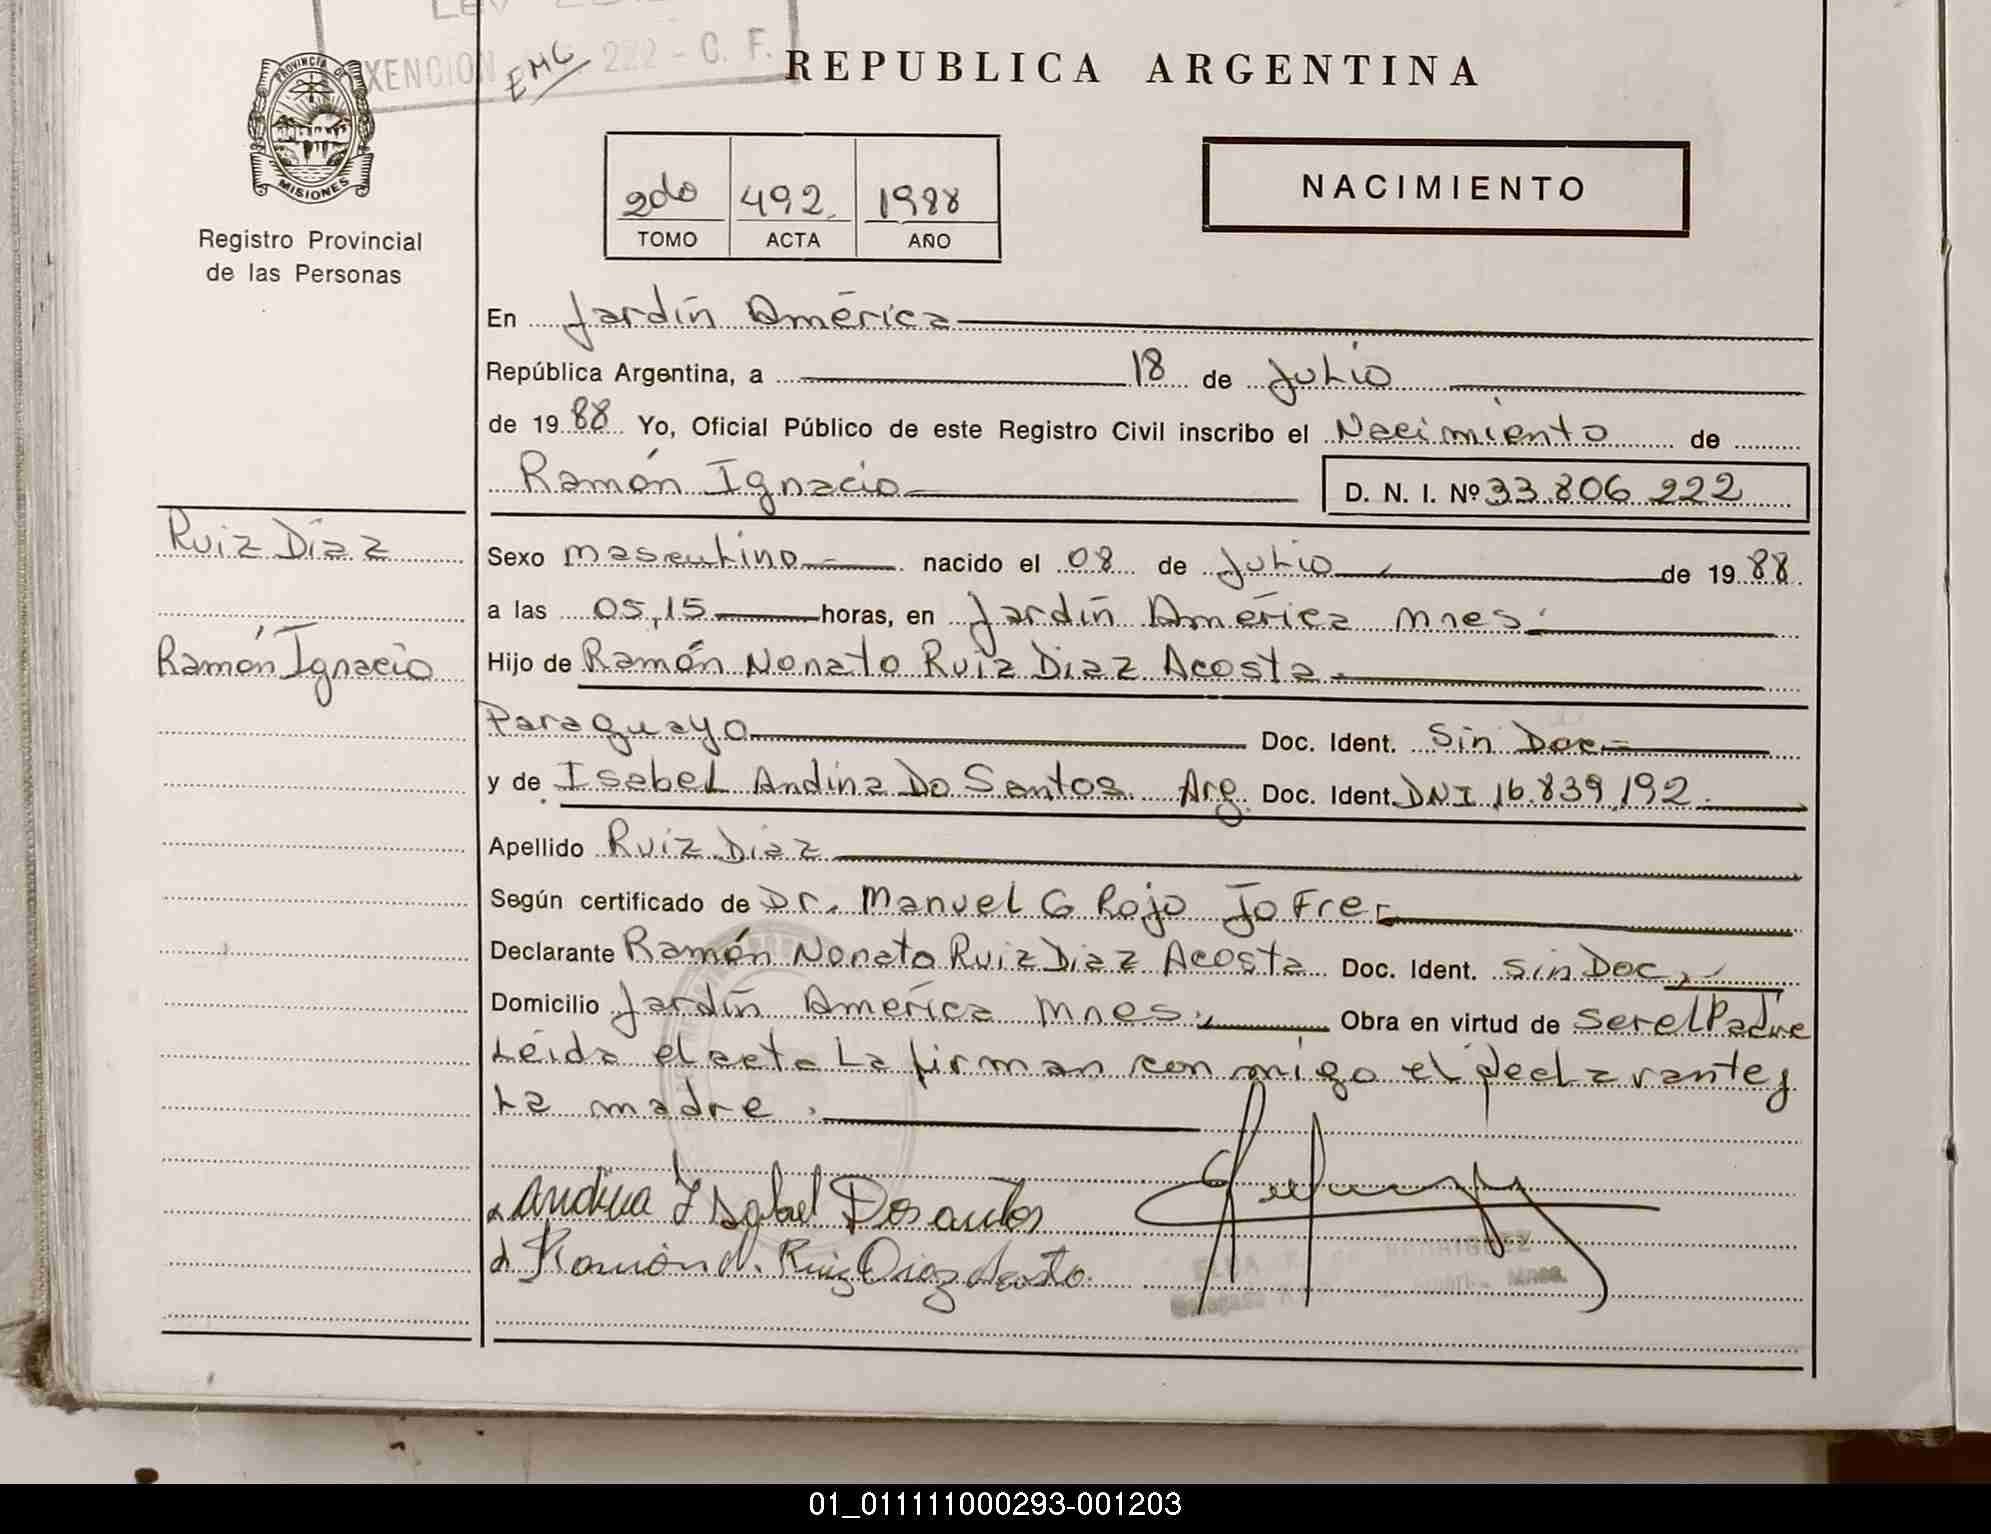 XENCION 222 - C. F.
EMG
REPUBLICA ARGENTINA
PROVINCIA DE
MISIONES
Registro Provincial
de las Personas
2do 492 1988
TOMO ACTA AÑO
NACIMIENTO
En Jardín América
República Argentina, a 18 de Julio
de 1988 Yo, Oficial Público de este Registro Civil inscribo el Nacimiento de
Ramón Ignacio D. N. I. Nº 33.806.222
Ruiz Díaz
Sexo masculino nacido el 08 de Julio de 1988
a las 05,15 horas, en Jardín América Mnes.
Ramón Ignacio
Hijo de Ramón Nonato Ruiz Diaz Acosta
Paraguayo Doc. Ident. Sin Doc.
y de Isabel Andina Do Santos Arg. Doc. Ident. DNI 16.839.192
Apellido Ruiz Diaz
Según certificado de Dr. Manuel G Rojo Jofre
Declarante Ramón Nonato Ruiz Diaz Acosta Doc. Ident. sin Doc.
Domicilio Jardín América Mnes. Obra en virtud de ser el Padre
Leida el acta La firman con migo el declarante y
La madre.
Andina Isabel Dosantos
Ramón N. Ruiz Diaz Acosta
RODRIGUEZ
Mnes.
01_011111000293-001203